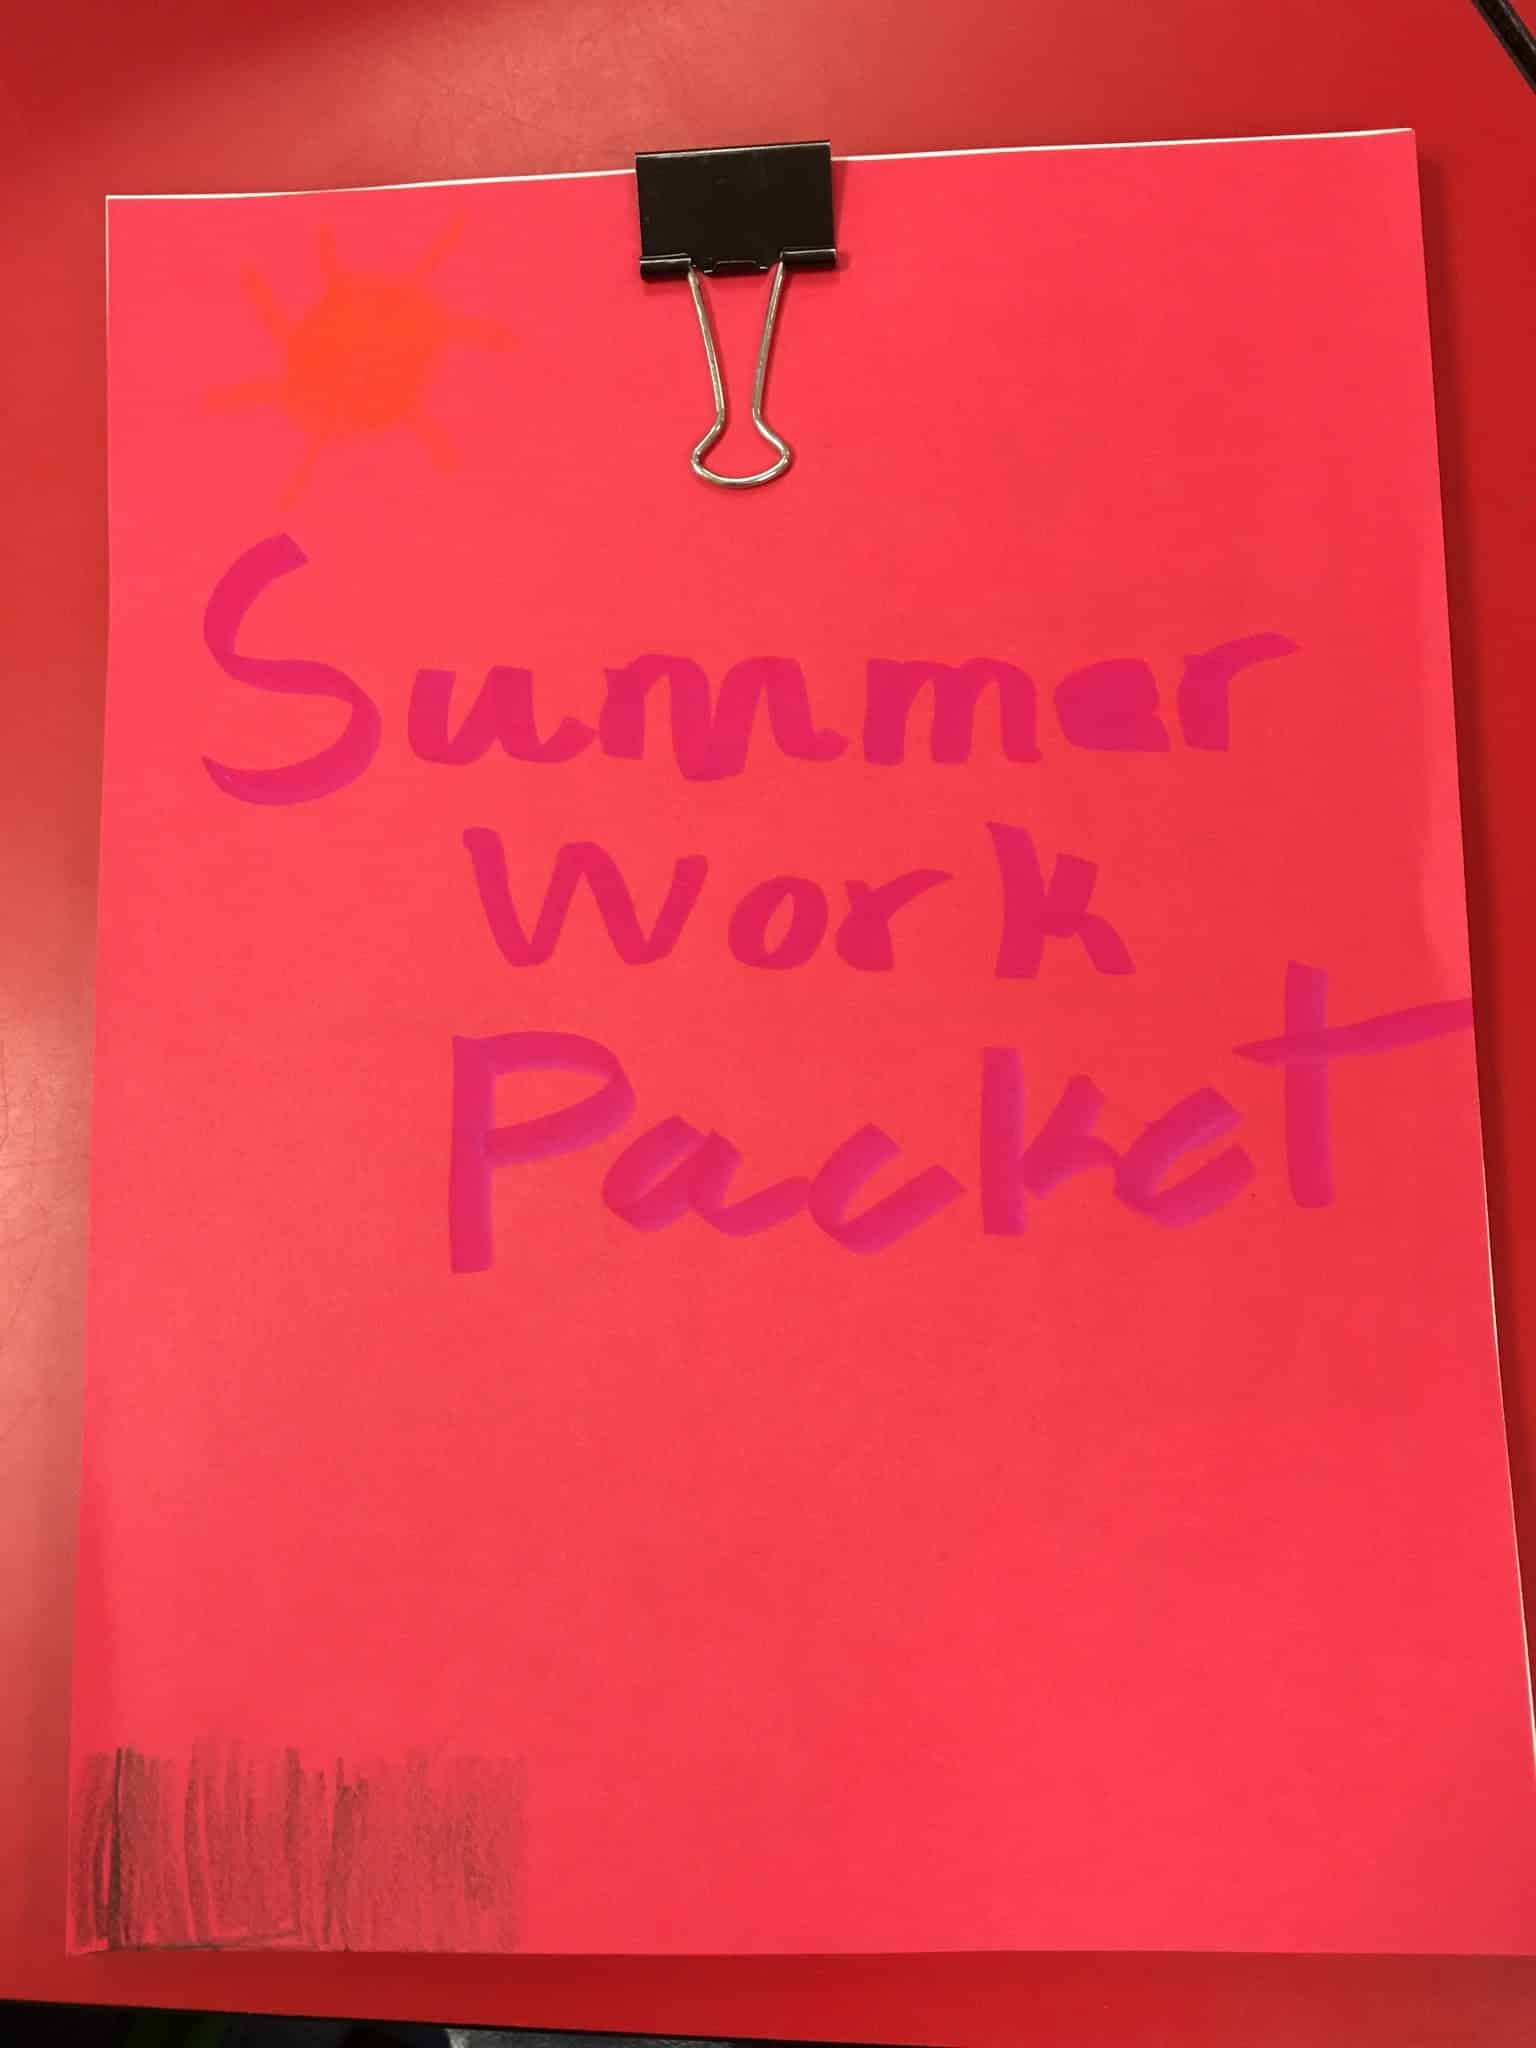 Summer
Work
Packet